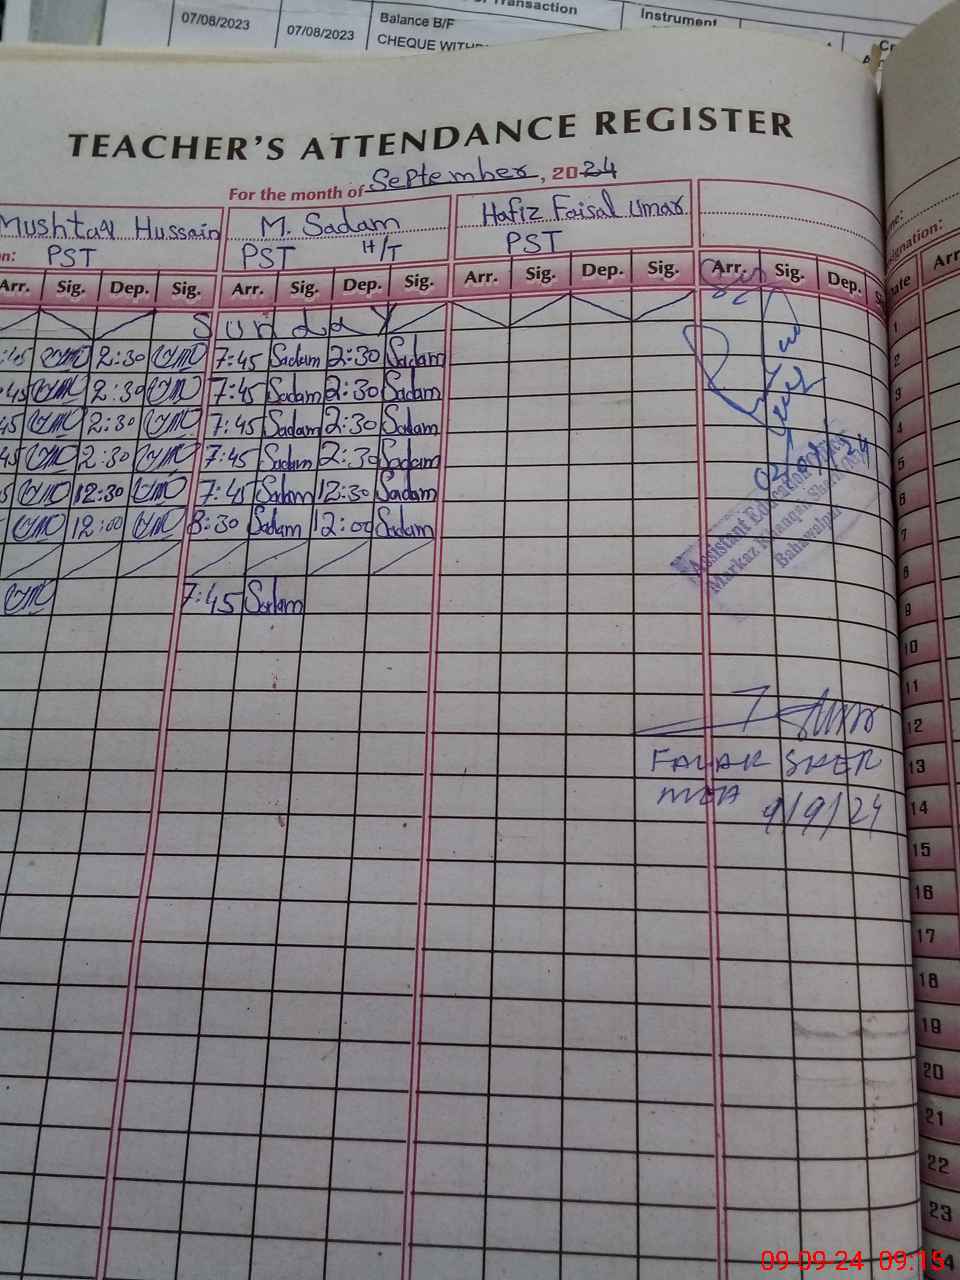 07/08/2023 07/08/2023 Balance B/F Transaction Instrument
CHEQUE
TEACHER'S ATTENDANCE REGISTER
For the month of September, 2024
Mushtaq Hussain M. Sadam Hafiz Faisal Umar
PST PST H/T PST
Arr. Sig. Dep. Sig. Arr. Sig. Dep. Sig. Arr. Sig. Dep. Sig. Arr. Sig. Dep.
Sunday
:45 2:30 7:45 Sadam 2:30 Sadam
45 2:30 7:45 Sadam 2:30 Sadam
45 2:30 7:45 Sadam 2:30 Sadam
45 2:30 7:45 Sadam 2:30 Sadam
12:30 7:45 Sadam 12:30 Sadam
12:00 8:30 Sadam 12:00 Sadam
7:45 Sadam
02/09/24
Assistant Education
Markaz
Bahawalpur
SHER
MEA
9/9/24
ignation:
Date Arr
1
2
3
4
5
6
7
8
9
10
11
12
13
14
15
16
17
18
19
20
21
22
23
09-09-24 09:15